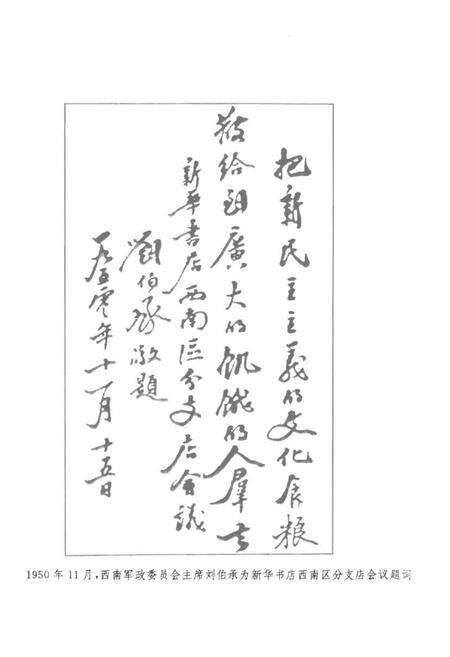 把新民主主義的文化食粮
散给到廣大的飢餓的人羣去
新華書店西南區分支店会議
劉伯承敬題
一九五零年十一月十五日
1950 年 11 月,西南军政委员会主席刘伯承为新华书店西南区分支店会议题词